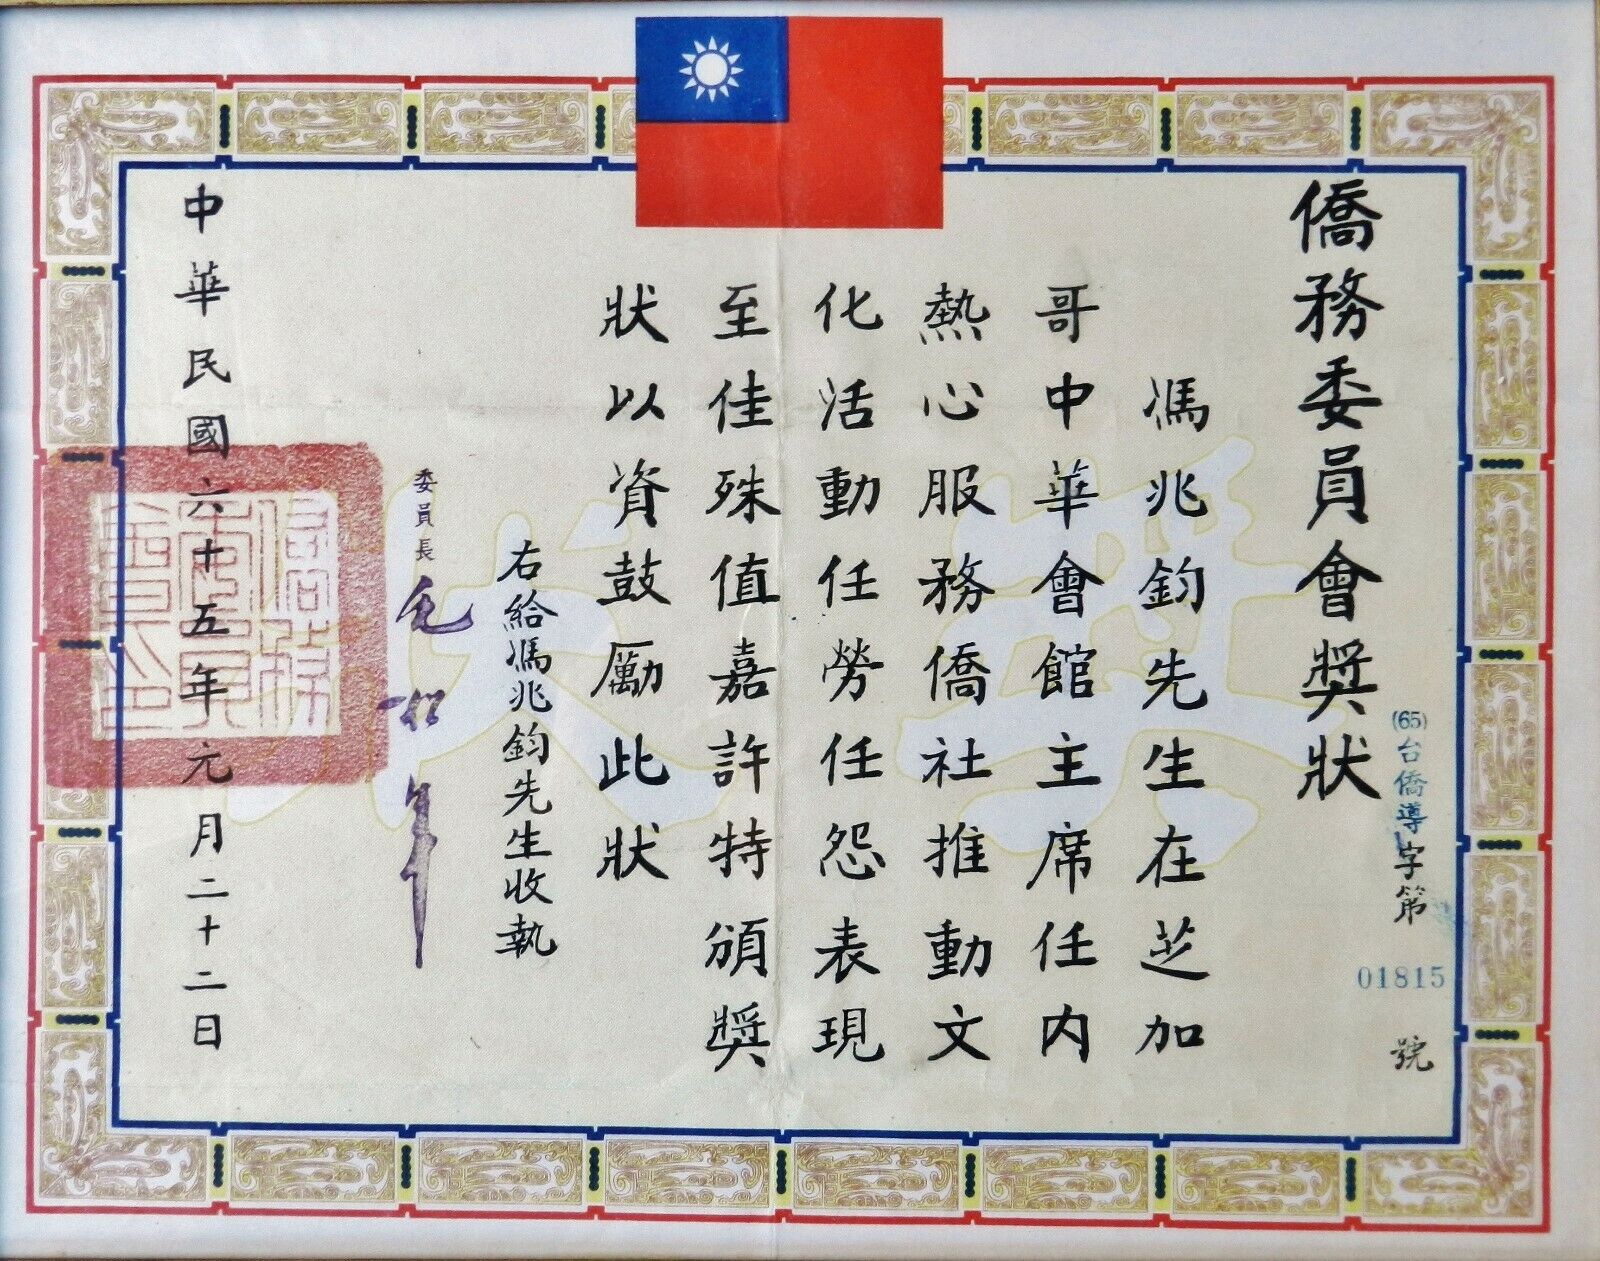 僑務委員會獎狀
(65)台僑導字第01815號
馮兆鈞先生在芝加
哥中華會館主席任內
熱心服務僑社推動文
化活動任勞任怨表現
至佳殊值嘉許特頒獎
狀以資鼓勵此狀
右給馮兆鈞先生收執
委員長 毛松年
中華民國六十五年元月二十二日
僑務委員會印
獎狀